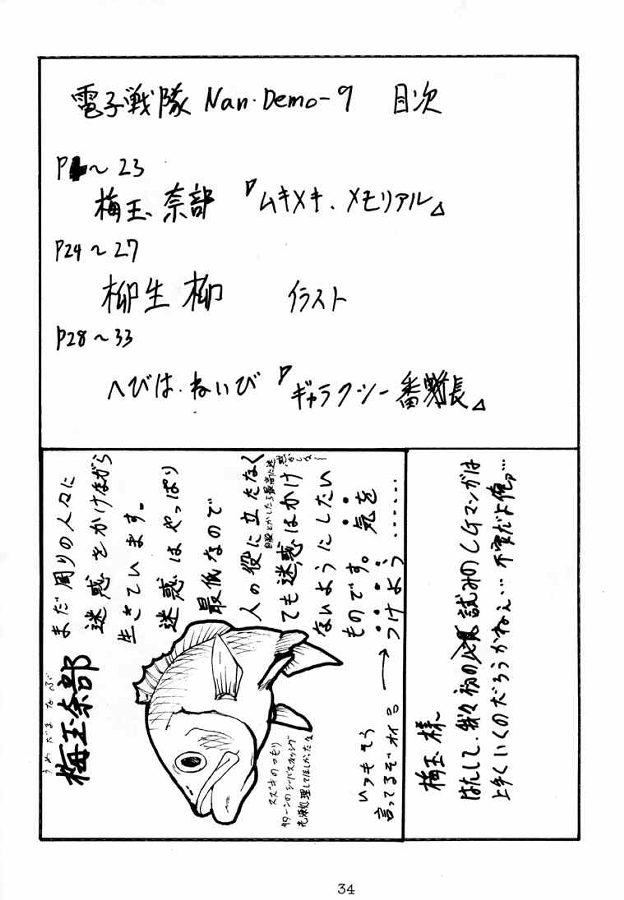 電子戦隊 Nan・Demo-9 目次
P4～23
梅玉奈部 『ムキメキ・メモリアル』
P24～27
柳生柳 イラスト
P28～33
へびは・ねいび 『ギャラクシー番長』
まだ周りの人々に
迷惑をかけながら
生きています。
迷惑はやっぱり
最低なので
人の役に立たなく
ても迷惑はかけ
ないようにしたい
ものです。気を
つけよう……
いつもそう
言ってるぞオイ
うめだまなぶ
梅玉奈部
スズキのつもり
梅玉様
はたして、我々初の試みのCGマンガは
上手くいくのだろうかねぇ…不安だよ俺ッ…
34